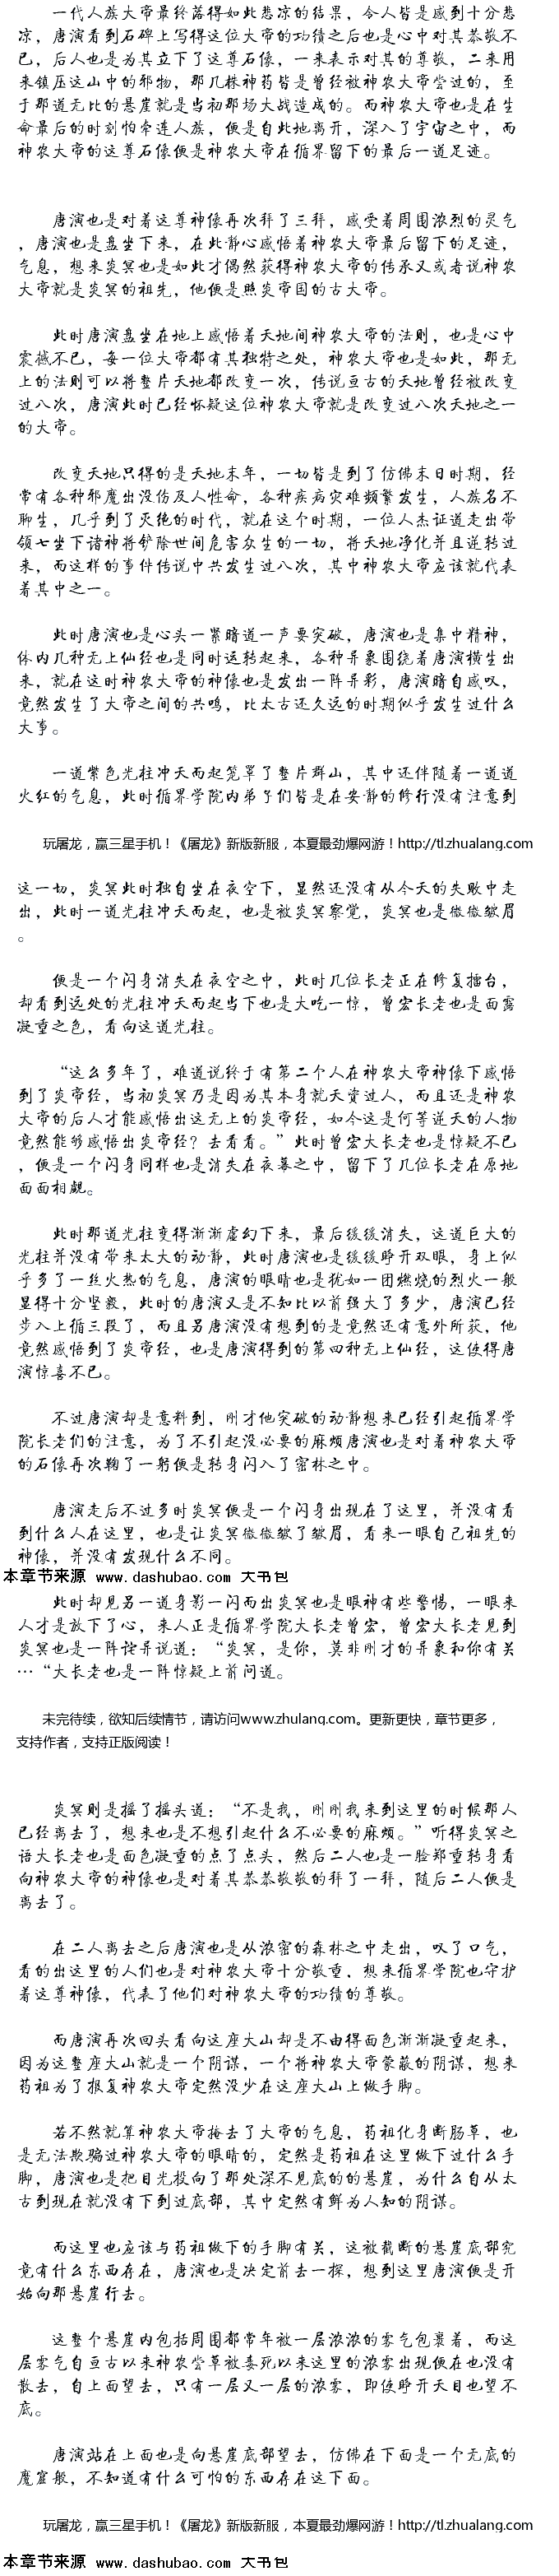 一代人族大帝最终落得如此悲凉的结果，令人皆是感到十分悲
凉，唐演看到石碑上写得这位大帝的功绩之后也是心中对其恭敬不
已，后人也是为其立下了这尊石像，一来表示对其的尊敬，二来用
来镇压这山中的邪物，那几株神药皆是曾经被神农大帝尝过的，至
于那道无比的悬崖就是当初那场大战造成的。而神农大帝也是在生
命最后的时刻怕牵连人族，便是自此地离开，深入了宇宙之中，而
神农大帝的这尊石像便是神农大帝在循界留下的最后一道足迹。
唐演也是对着这尊神像再次拜了三拜，感受着周围浓烈的灵气
，唐演也是盘坐下来，在此静心感悟着神农大帝最后留下的足迹，
气息，想来炎冥也是如此才偶然获得神农大帝的传承又或者说神农
大帝就是炎冥的祖先，他便是照炎帝国的古大帝。
此时唐演盘坐在地上感悟着天地间神农大帝的法则，也是心中
震撼不已，每一位大帝都有其独特之处，神农大帝也是如此，那无
上的法则可以将整片天地都改变一次，传说亘古的天地曾经被改变
过八次，唐演此时已经怀疑这位神农大帝就是改变过八次天地之一
的大帝。
改变天地只得的是天地末年，一切皆是到了仿佛末日时期，经
常有各种邪魔出没伤及人性命，各种疾病灾难频繁发生，人族名不
聊生，几乎到了灭绝的时代，就在这个时期，一位人杰证道走出带
领七坐下诸神将铲除世间危害众生的一切，将天地净化并且逆转过
来，而这样的事件传说中共发生过八次，其中神农大帝应该就代表
着其中之一。
此时唐演也是心头一紧暗道一声要突破，唐演也是集中精神，
体内几种无上仙经也是同时运转起来，各种异象围绕着唐演横生出
来，就在这时神农大帝的神像也是发出一阵异彩，唐演暗自感叹，
竟然发生了大帝之间的共鸣，比太古还久远的时期似乎发生过什么
大事。
一道紫色光柱冲天而起笼罩了整片群山，其中还伴随着一道道
火红的气息，此时循界学院内弟子们皆是在安静的修行没有注意到
玩屠龙，赢三星手机！《屠龙》新版新服，本夏最劲爆网游！http://tl.zhualang.com
这一切，炎冥此时独自坐在夜空下，显然还没有从今天的失败中走
出，此时一道光柱冲天而起，也是被炎冥察觉，炎冥也是微微皱眉
。
便是一个闪身消失在夜空之中，此时几位长老正在修复擂台，
却看到远处的光柱冲天而起当下也是大吃一惊，曾宏长老也是面露
凝重之色，看向这道光柱。
“这么多年了，难道说终于有第二个人在神农大帝神像下感悟
到了炎帝经，当初炎冥乃是因为其本身就天资过人，而且还是神农
大帝的后人才能感悟出这无上的炎帝经，如今这是何等逆天的人物
竟然能够感悟出炎帝经？去看看。”此时曾宏大长老也是惊疑不已
，便是一个闪身同样也是消失在夜幕之中，留下了几位长老在原地
面面相觑。
此时那道光柱变得渐渐虚幻下来，最后缓缓消失，这道巨大的
光柱并没有带来太大的动静，此时唐演也是缓缓睁开双眼，身上似
乎多了一丝火热的气息，唐演的眼睛也是犹如一团燃烧的烈火一般
显得十分坚毅，此时的唐演又是不知比以前强大了多少，唐演已经
步入上循三段了，而且另唐演没有想到的是竟然还有意外所获，他
竟然感悟到了炎帝经，也是唐演得到的第四种无上仙经，这使得唐
演惊喜不已。
不过唐演却是意料到，刚才他突破的动静想来已经引起循界学
院长老们的注意，为了不引起没必要的麻烦唐演也是对着神农大帝
的石像再次鞠了一躬便是转身闪入了密林之中。
唐演走后不过多时炎冥便是一个闪身出现在了这里，并没有看
到什么人在这里，也是让炎冥微微皱了皱眉，看来一眼自己祖先的
神像，并没有发现什么不同。
本章节来源 www.dashubao.com 大书包
此时却见另一道身影一闪而出炎冥也是眼神有些警惕，一眼来
人才是放下了心，来人正是循界学院大长老曾宏，曾宏大长老见到
炎冥也是一阵诧异说道：“炎冥，是你，莫非刚才的异象和你有关
…“大长老也是一阵惊疑上前问道。
未完待续，欲知后续情节，请访问www.zhulang.com。更新更快，章节更多，
支持作者，支持正版阅读！
炎冥则是摇了摇头道：“不是我，刚刚我来到这里的时候那人
已经离去了，想来也是不想引起什么不必要的麻烦。”听得炎冥之
语大长老也是面色凝重的点了点头，然后二人也是一脸郑重转身看
向神农大帝的神像也是对着其恭恭敬敬的拜了一拜，随后二人便是
离去了。
在二人离去之后唐演也是从浓密的森林之中走出，叹了口气，
看的出这里的人们也是对神农大帝十分敬重，想来循界学院也守护
着这尊神像，代表了他们对神农大帝的功绩的尊敬。
而唐演再次回头看向这座大山却是不由得面色渐渐凝重起来，
因为这整座大山就是一个阴谋，一个将神农大帝蒙蔽的阴谋，想来
药祖为了报复神农大帝定然没少在这座大山上做手脚。
若不然就算神农大帝掩去了大帝的气息，药祖化身断肠草，也
是无法欺骗过神农大帝的眼睛的，定然是药祖在这里做下过什么手
脚，唐演也是把目光投向了那处深不见底的的悬崖，为什么自从太
古到现在就没有下到过底部，其中定然有鲜为人知的阴谋。
而这里也应该与药祖做下的手脚有关，这被截断的悬崖底部究
竟有什么东西存在，唐演也是决定前去一探，想到这里唐演便是开
始向那悬崖行去。
这整个悬崖内包括周围都常年被一层浓浓的雾气包裹着，而这
层雾气自亘古以来神农尝草被毒死以来这里的浓雾出现便在也没有
散去，自上面望去，只有一层又一层的浓雾，即使睁开天目也望不
底。
唐演站在上面也是向悬崖底部望去，仿佛在下面是一个无底的
魔窟般，不知道有什么可怕的东西存在这下面。
玩屠龙，赢三星手机！《屠龙》新版新服，本夏最劲爆网游！http://tl.zhualang.com
本章节来源 www.dashubao.com 大书包